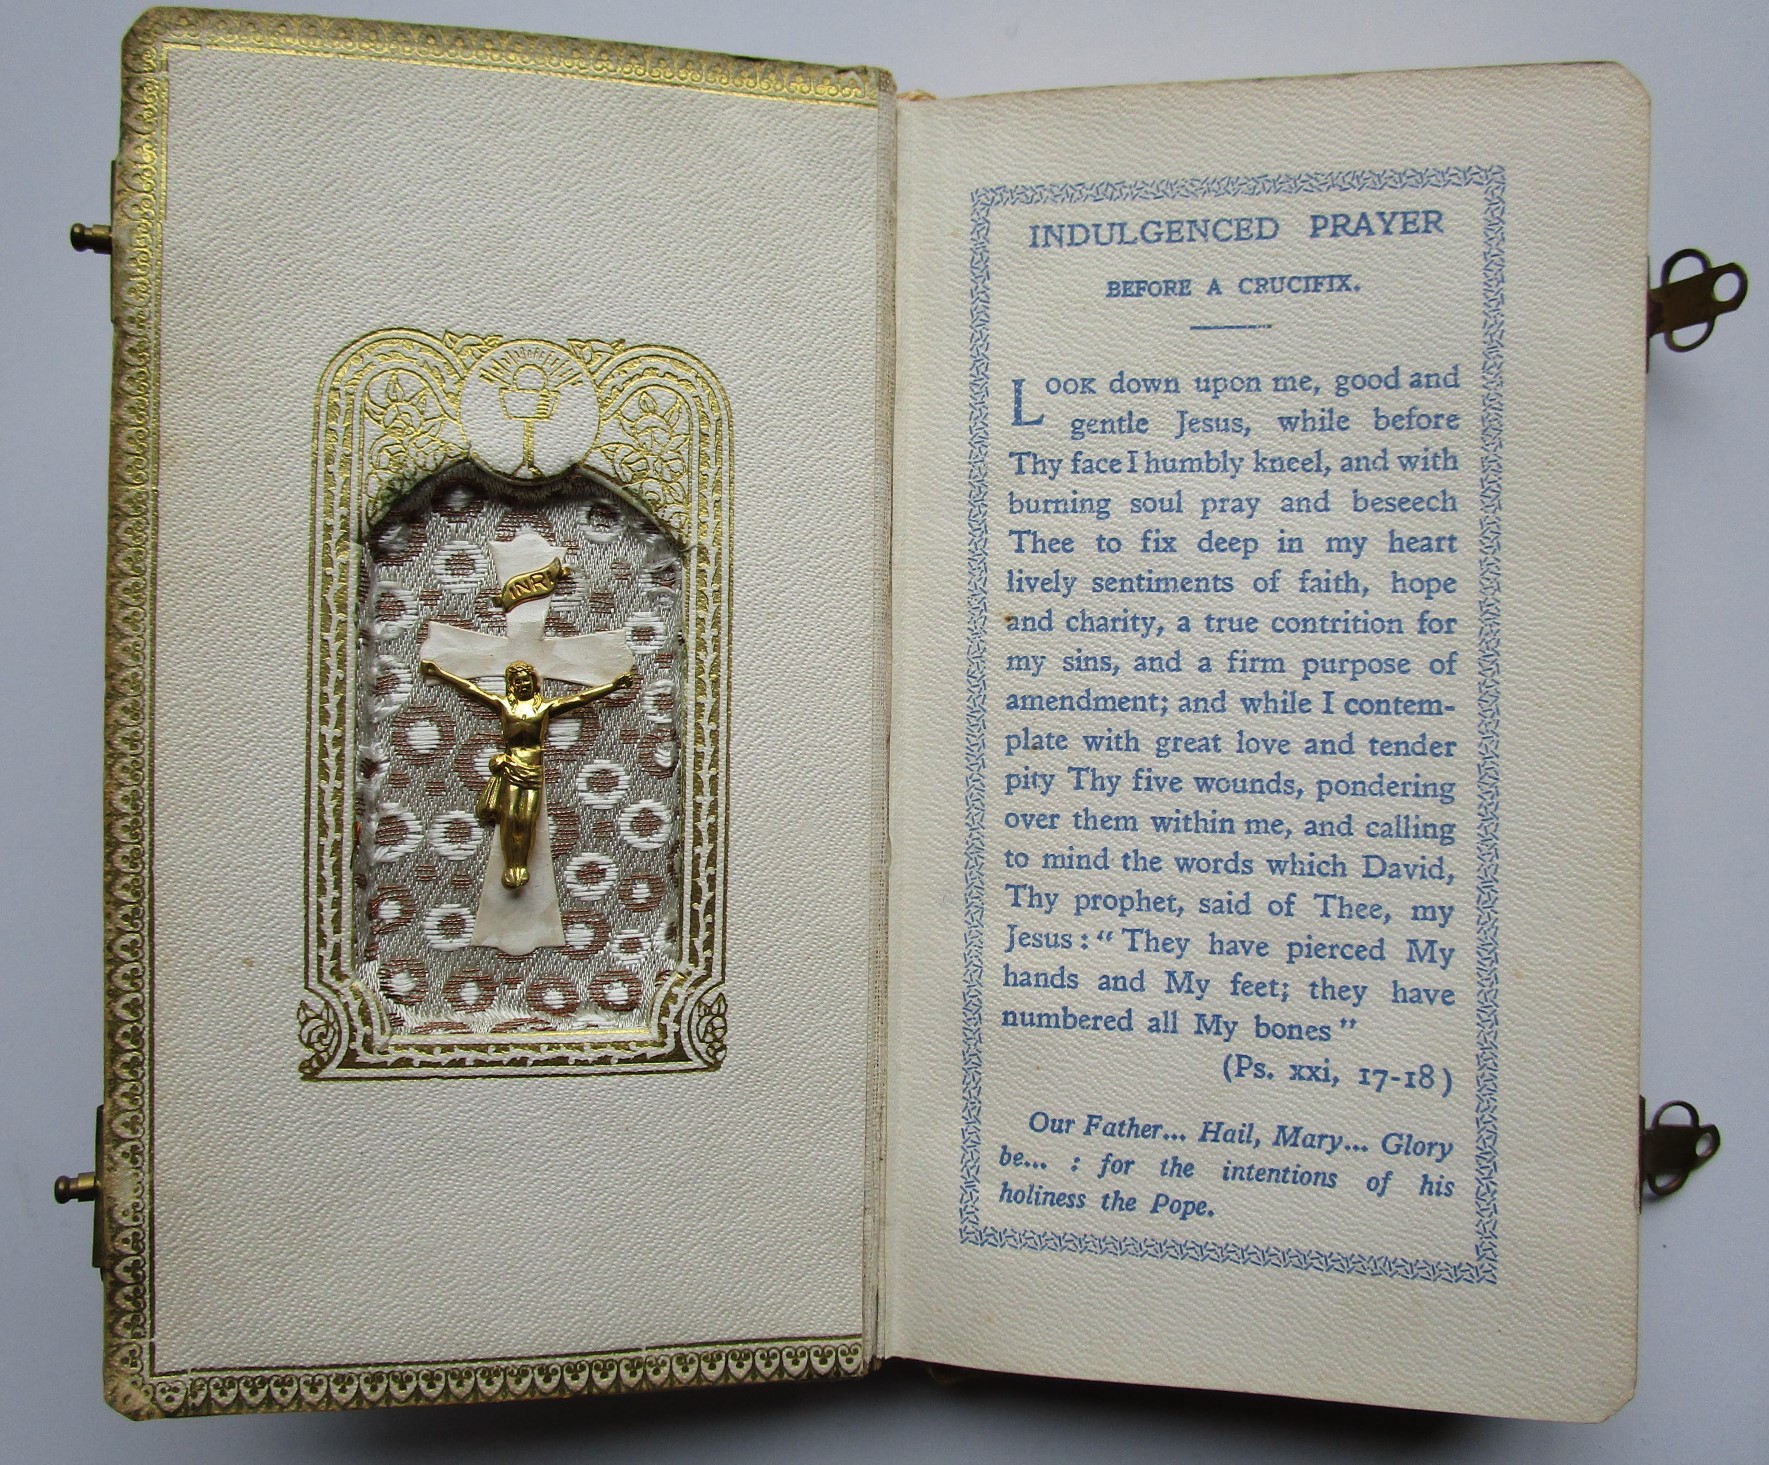 INRI
INDULGENCED PRAYER
BEFORE A CRUCIFIX.
LOOK down upon me, good and
gentle Jesus, while before
Thy face I humbly kneel, and with
burning soul pray and beseech
Thee to fix deep in my heart
lively sentiments of faith, hope
and charity, a true contrition for
my sins, and a firm purpose of
amendment; and while I contem-
plate with great love and tender
pity Thy five wounds, pondering
over them within me, and calling
to mind the words which David,
Thy prophet, said of Thee, my
Jesus : “ They have pierced My
hands and My feet; they have
numbered all My bones ”
(Ps. xxi, 17-18)
Our Father... Hail, Mary... Glory
be... : for the intentions of his
holiness the Pope.